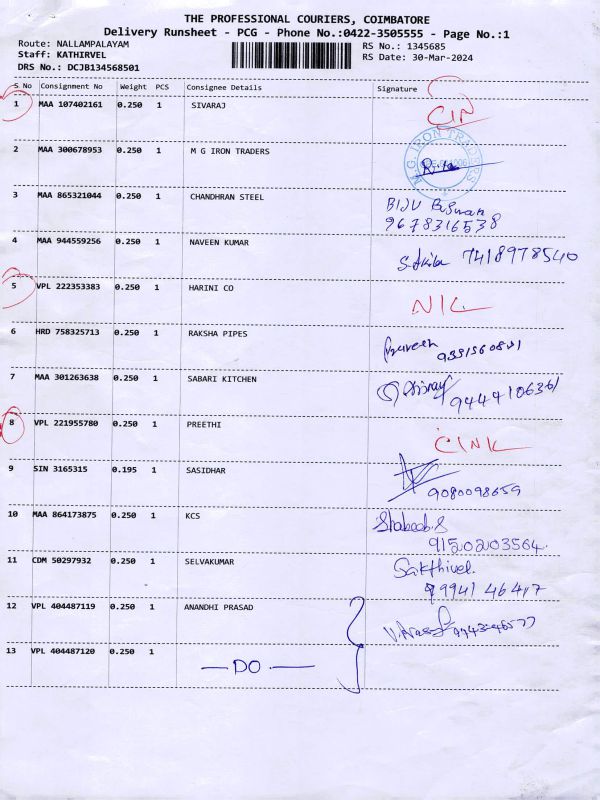 THE PROFESSIONAL COURIERS, COIMBATORE
Delivery Runsheet - PCG - Phone No.:0422-3505555 - Page No.:1
Route: NALLAMPALAYAM RS No.: 1345685
Staff: KATHIRVEL RS Date: 30-Mar-2024
DRS No.: DCJB134568501
S No Consignment No Weight PCS Consignee Details Signature
1 MAA 107402161 0.250 1 SIVARAJ
2 MAA 300678953 0.250 1 M G IRON TRADERS
M.G. IRON TRADERS
3 MAA 865321044 0.250 1 CHANDHRAN STEEL BIJU
9678316538
4 MAA 944559256 0.250 1 NAVEEN KUMAR 7418978540
5 VPL 222353383 0.250 1 HARINI CO
6 HRD 758325713 0.250 1 RAKSHA PIPES
7 MAA 301263638 0.250 1 SABARI KITCHEN
9444106361
8 VPL 221955780 0.250 1 PREETHI
9 SIN 3165315 0.195 1 SASIDHAR
9080098659
10 MAA 864173875 0.250 1 KCS Shabeeb.S
9150203564
11 CDM 50297932 0.250 1 SELVAKUMAR Sakthivel
12 VPL 404487119 0.250 1 ANANDHI PRASAD
13 VPL 404487120 0.250 1 — DO —